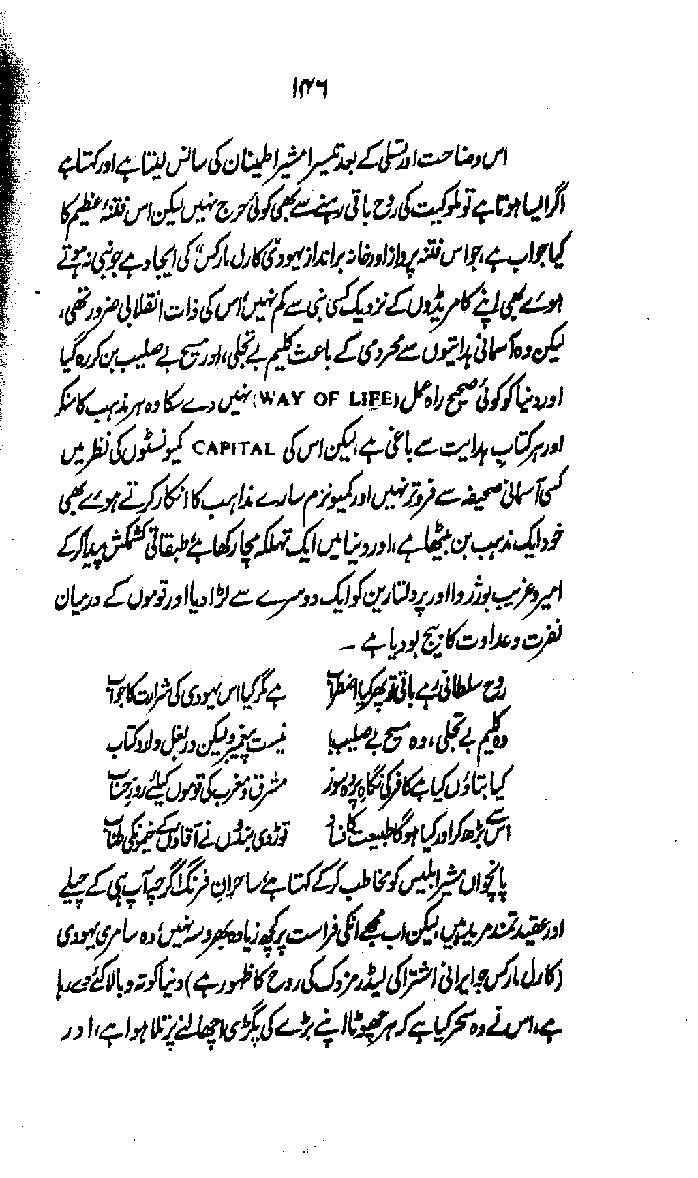 ۱۴۶
اس وضاحت اور تسلی کے بعد تیسرا مشیر اطینان کی سانس لیتا ہے اور کہتا ہے
اگر ایسا ہوتا ہے تو ملوکیت کی روح باقی رہنے سے بھی کوئی حرج نہیں لیکن اس فتنۂ عظیم کا
کیا جواب ہے، جو اس فتنہ پرداز اور خانہ برانداز یہودی کارل مارکس کی ایجاد ہے جو نبی نہ ہوتے
ہوے بھی اپنے کامریڈوں کے نزدیک کسی نبی سے کم نہیں، اس کی ذات انقلابی ضرور تھی،
لیکن وہ آسمانی ہدایتوں سے محرومی کے باعث کلیم بے تجلی، اور مسیح بے صلیب بن کر رہ گیا
اور دنیا کو کوئی صحیح راہ عمل (WAY OF LIFE) نہیں دے سکا وہ ہر مذہب کا منکر
اور ہر کتاب ہدایت سے باغی ہے، لیکن اس کی CAPITAL کمیونسٹوں کی نظر میں
کسی آسمانی صحیفہ سے فروتر نہیں اور کمیونزم سارے مذاہب کا انکار کرتے ہوے بھی
خود ایک مذہب بن بیٹھا ہے، اور دنیا میں ایک تہلکہ مچا رکھا ہے، طبقاتی کشمکش پیدا کر کے
امیر و غریب بورژوا اور پرولتارین کو ایک دوسرے سے لڑا دیا اور قوموں کے درمیان
نفرت و عداوت کا بیج بو دیا ہے ۔
روح سلطانی رہے باقی تو پھر کیا اضطراب ہے مگر کیا اس یہودی کی شرارت کا جواب
وہ کلیم بے تجلی، وہ مسیح بے صلیب! نیست پیغمبر ولیکن در بغل دارد کتاب
کیا بتاؤں کیا ہے کافر کی نگاہِ پردہ سوز مشرق و مغرب کی قوموں کیلئے روزِ حساب
اس سے بڑھ کر اور کیا ہوگا طبیعت کا فساد توڑ دی بندوں نے آقاؤں کے خیموں کی طناب
پانچواں مشیر ابلیس کو مخاطب کر کے کہتا ہے، ساحرانِ فرنگ اگرچہ آپ ہی کے چیلے
اور عقیدتمند مرید ہیں، لیکن اب مجھے انکی فراست پر کچھ زیادہ بھروسہ نہیں، وہ سامری یہودی
(کارل مارکس جو ایرانی اشتراکی لیڈر مزدک کی روح کا ظہور ہے) دنیا کو تہ و بالا کئے دے رہا
ہے، اس نے وہ سحر کیا ہے کہ ہر چھوٹا اپنے بڑے کی پگڑی اچھالنے پر تلا ہوا ہے، اور